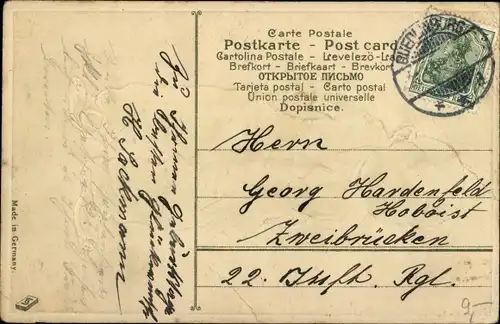 Carte Postale
Postkarte - Post card
Cartolina Postale - Levelező-La
Brefkort - Briefkaart - Brevkort
ОТКРЫТОЕ ПИСЬМО
Tarjeta postal - Carto postal
Union postale universelle
Dopisnice.
Zu Ihrem Geburtstage
die besten Glückwünsche
H. Sackmann
Herrn
Georg Hardenfeld
Hoboist
Zweibrücken
22. Inft. Rgl.
Made in Germany.
9,-